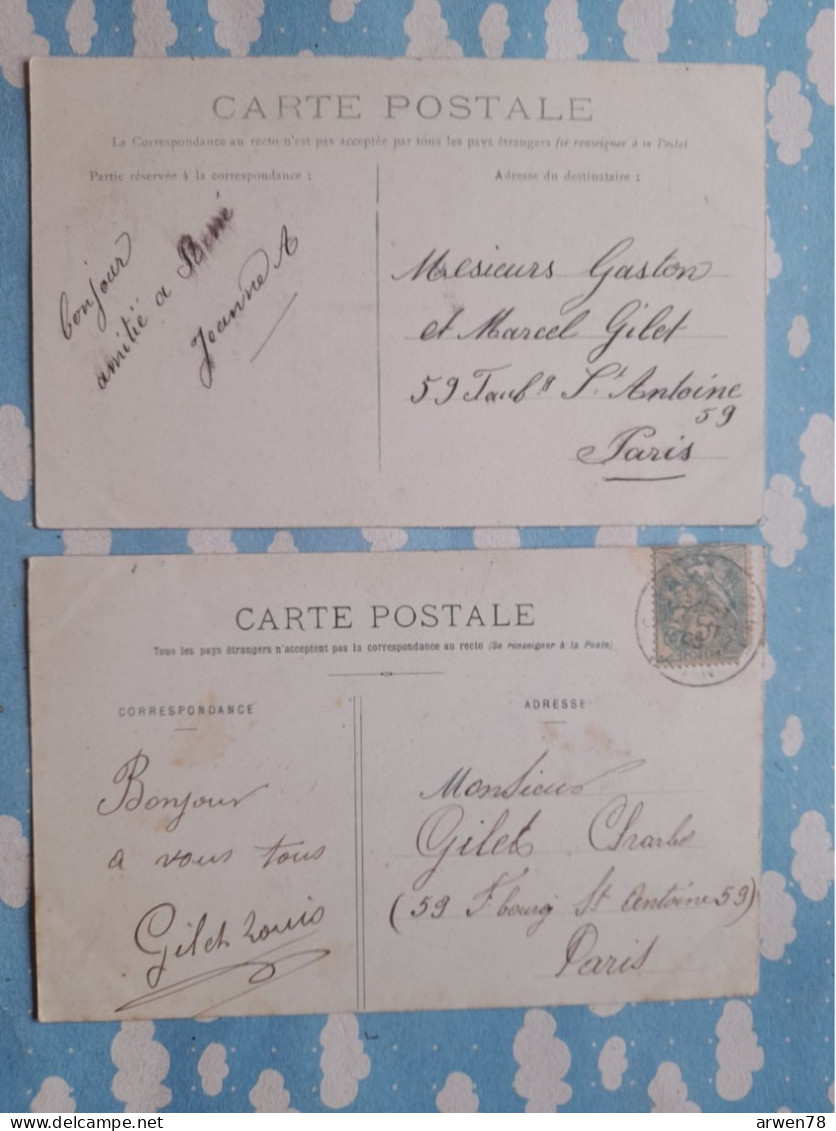 CARTE POSTALE
La Correspondance au recto n'est pas acceptée par tous les pays étrangers (se renseigner à la Poste)
Partie réservée à la correspondance :
bonjour
amitié a
Jeanne A
Adresse du destinataire :
Mesieurs Gaston
et Marcel Gilet
59 Faubg St Antoine
59
Paris
CARTE POSTALE
Tous les pays étrangers n'acceptent pas la correspondance au recto (Se renseigner à la Poste)
CORRESPONDANCE
Bonjour
a vous tous
Gilet Louis
ADRESSE
Monsieur
Gilet Charles
(59 Fbourg St Antoine 59)
Paris
arwen78